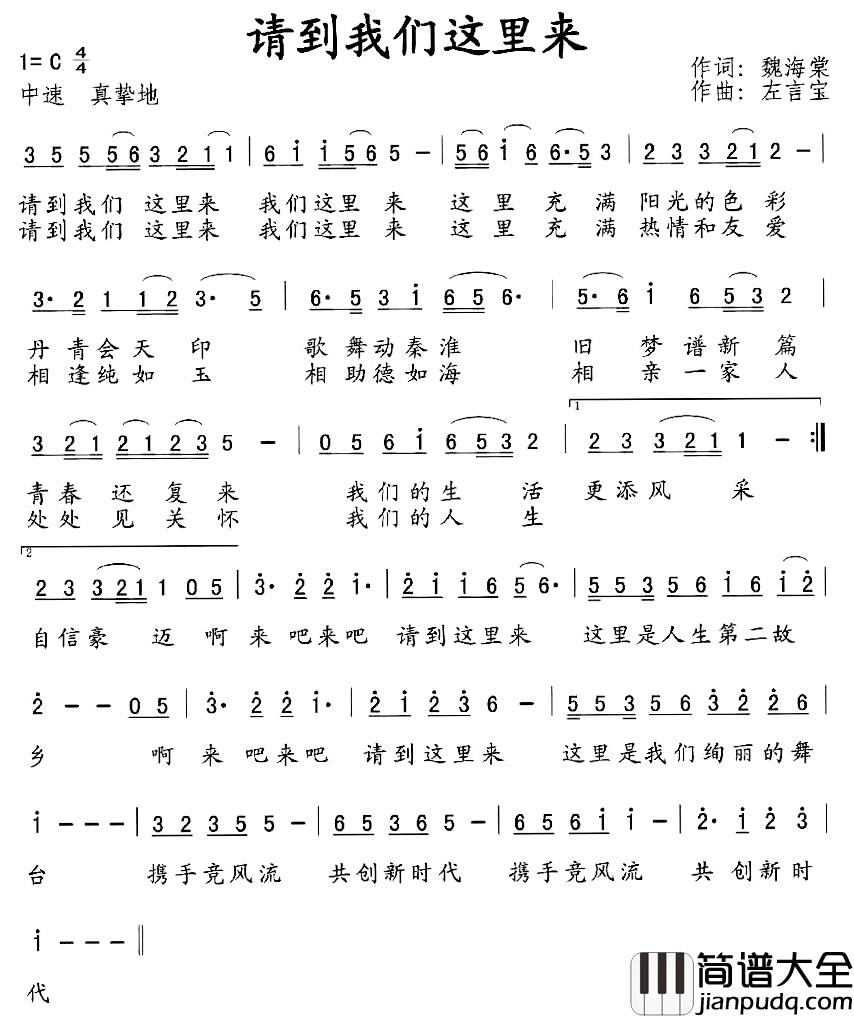 请到我们这里来
1= C 4/4
中速 真挚地
作词: 魏海棠
作曲: 左言宝
3 5 5 5 6 3 2 1 1 | 6 i i 5 6 5 - | 5 6 i 6 6· 5 3 | 2 3 3 2 1 2 - |
请到我们 这里来 我们这里 来 这 里 充 满 阳光的色 彩
请到我们 这里来 我们这里 来 这 里 充 满 热情和友 爱
3· 2 1 1 2 3· 5 | 6· 5 3 i 6 5 6· | 5· 6 i 6 5 3 2 |
丹 青会天 印 歌 舞动秦淮 旧 梦 谱新 篇
相 逢纯如 玉 相 助德如海 相 亲一家 人
1
3 2 1 2 1 2 3 5 - | 0 5 6 i 6 5 3 2 | 2 3 3 2 1 1 - :|
青春 还 复 来 我们的生 活 更添风 采
处处 见 关 怀 我们的人 生
2
2 3 3 2 1 1 0 5 | 3· 2 2 i· | 2 i i 6 5 6· | 5 5 3 5 6 i 6 i 2 |
自信豪 迈 啊 来 吧来吧 请到这里来 这里是人生第二故
2 - - 0 5 | 3· 2 2 i· | 2 i 2 3 6 - | 5 5 3 5 6 3 2 2 6 |
乡 啊 来 吧来吧 请到这里来 这里是我们绚丽的舞
i - - - | 3 2 3 5 5 - | 6 5 3 6 5 - | 6 5 6 i i - | 2· i 2 3 |
台 携手竞风流 共创新时代 携手竞风流 共 创新时
i - - - ‖
代
简谱大全
jianpudq.com